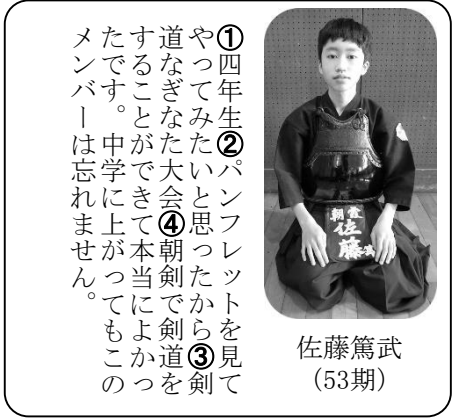 ①四年生②パンフレットを見て
やってみたいと思ったから③剣
道なぎなた大会④朝剣で剣道を
することができて本当によかっ
たです。中学に上がってもこの
メンバーは忘れません。
朝霞
佐藤
佐藤篤武
(53期)